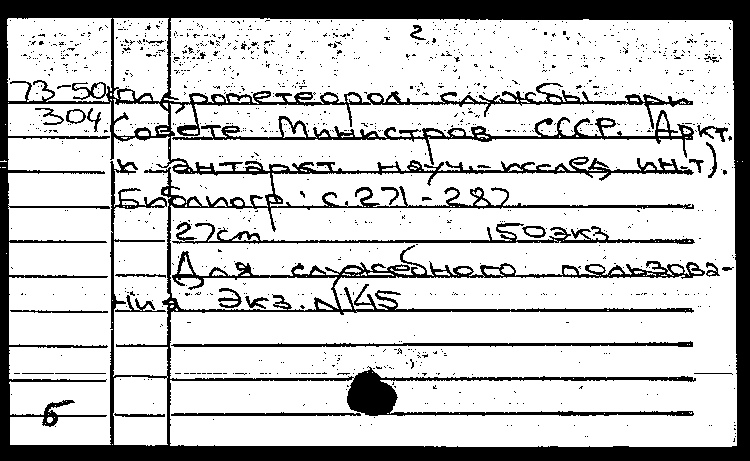 2.
73-50 гидрометеорол. службы при
304 Совете Министров СССР. Аркт.
и антаркт. науч.-исслед. ин-т).
Библиогр.: с.271-287.
27cm 150экз
Для служебного пользова-
ния Экз. №145
Б